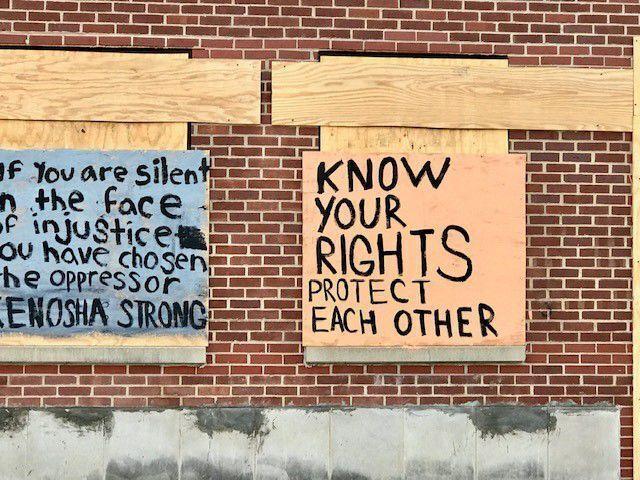 If You are silent
n the face
of injustice
ou have chosen
he oppressor
KENOSHA STRONG
KNOW
YOUR
RIGHTS
PROTECT
EACH OTHER